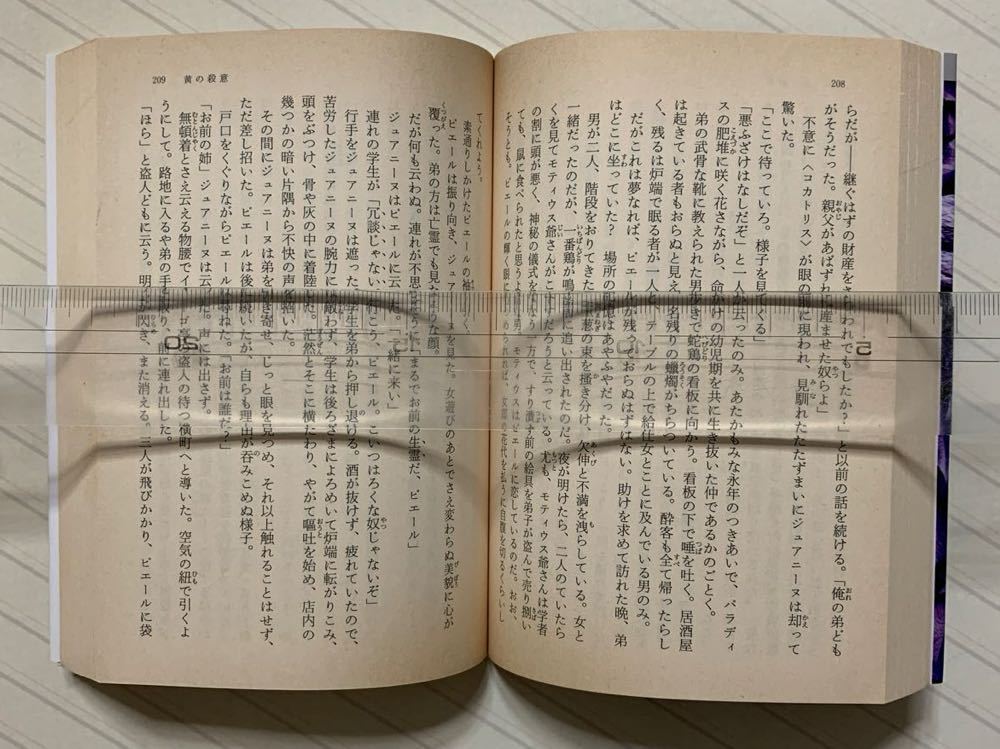 208
らだが――継ぐはずの財産をさらわれでもしたか?」と以前の話を続ける。「俺の弟ども
がそうだった。親父があばずれに産ませた奴らよ」
不意に〈コカトリス〉が眼の前に現われ、見馴れたたたずまいにジュアニーヌは却って
驚いた。
「ここで待っていろ。様子を見てくる」
「悪ふざけはなしだぞ」と一人が去ったのみ。あたかもみな永年のつきあいで、パラディ
スの肥堆に咲く花さながら、命がけの幼児期を共に生き抜いた仲であるかのごとく。
弟の武骨な靴に教えられた男歩きで蛇鶏の看板に向かう。看板の下で唾を吐く。居酒屋
は起きている者もおらぬと見え、名残りの蠟燭がちらついている。酔客も全て帰ったらし
く、残るは炉端で眠る者が一人と、テーブルの上で給仕女とことに及んでいる男のみ。
だがこれは夢なれば、ピエールが残っておらぬはずはない。助けを求めて訪れた晩、弟
はどこに坐っていた? 場所の記憶はあやふやだった。
男が二人、階段をおりてきた。玉葱の束を掻き分け、欠伸と不満を洩らしている。女と
一緒だったのだが、一番鶏が鳴き前に追い出されたのだ。夜が明けたら、二人のていたら
きを見てモティウス爺さんがこけ だろうと云っている。尤も、モティウス爺さんは学者
の割に頭が悪く、神秘の儀式を 一方で、すり潰す前の絵具を弟子が盗んで売り捌い
ても、鼠に食べられたと思うよ 男。モティウスはピエールに恋しているのだ。おお、
そうとも。ピエールの輝く眼に められれば、女郎の花代を払うに自腹を切るくらいし
てくれよう。
素通りしかけたピエールの袖を く。
ピエールは振り向き、ジュア ーヌを見た。女遊びのあとでさえ変わらぬ美貌に心が
覆った。弟の方は亡霊でも見 ような顔。
だが何も云わぬ。連れが不思 うに「まるでお前の生霊だ、ピエール」
ジュアニーヌはピエールに云 た。「一緒に来い」
連れの学生が「冗談じゃない 行こう、ピエール。こいつはろくな奴じゃないぞ」
行手をジュアニーヌは遮った。学生を弟から押し退ける。酒が抜けず、疲れていたので、
苦労したジュアニーヌの腕力に 敵わず、学生は後ろざまによろめいて炉端に転がりこみ、
頭をぶつけ、骨や灰の中に着陸した。茫然とそこに横たわり、やがて嘔吐を始め、店内の
幾つかの暗い片隅から不快の声を招いた。
その間にジュアニーヌは弟を引き寄せ、じっと眼を見つめ、それ以上触れることはせず、
ただ差し招いた。ピエールは後に続いたが、自らも理由が吞みこめぬ様子。
戸口をくぐりながらピエールは尋ねた。「お前は誰だ?」
「お前の姉」ジュアニーヌは云 た。声には出さず。
無頓着とさえ云える物腰でイ を盗人の待つ横町へと導いた。空気の紐で引くよ
うにして。路地に入るや弟の手を取り、前に連れ出した。
「ほら」と盗人どもに云う。明 閃き、また消える。三人が飛びかかり、ピエールに袋
209 黄の殺意
5
10
20